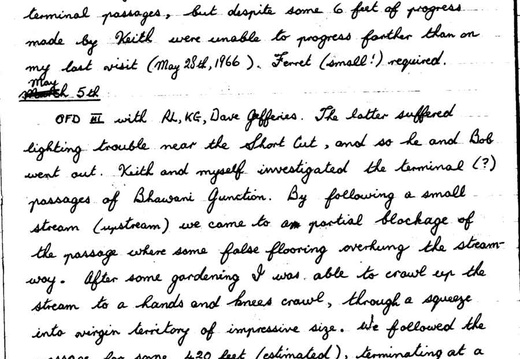 terminal passages, but despite some 6 feet of progress
made by Keith were unable to progress farther than on
my last visit (May 28th, 1966). Ferret (small!) required.
May
March 5th
OFD III with RL, KG, Dave Jefferies. The latter suffered
lighting trouble near the Short Cut, and so he and Bob
went out. Keith and myself investigated the terminal (?)
passages of Bhawani Junction. By following a small
stream (upstream) we came to a partial blockage of
the passage where some false flooring overhung the stream-
way. After some gardening I was able to crawl up the
stream to a hands and knees crawl, through a squeeze
into virgin territory of impressive size. We followed the
passage for some 420 feet (estimated), terminating at a